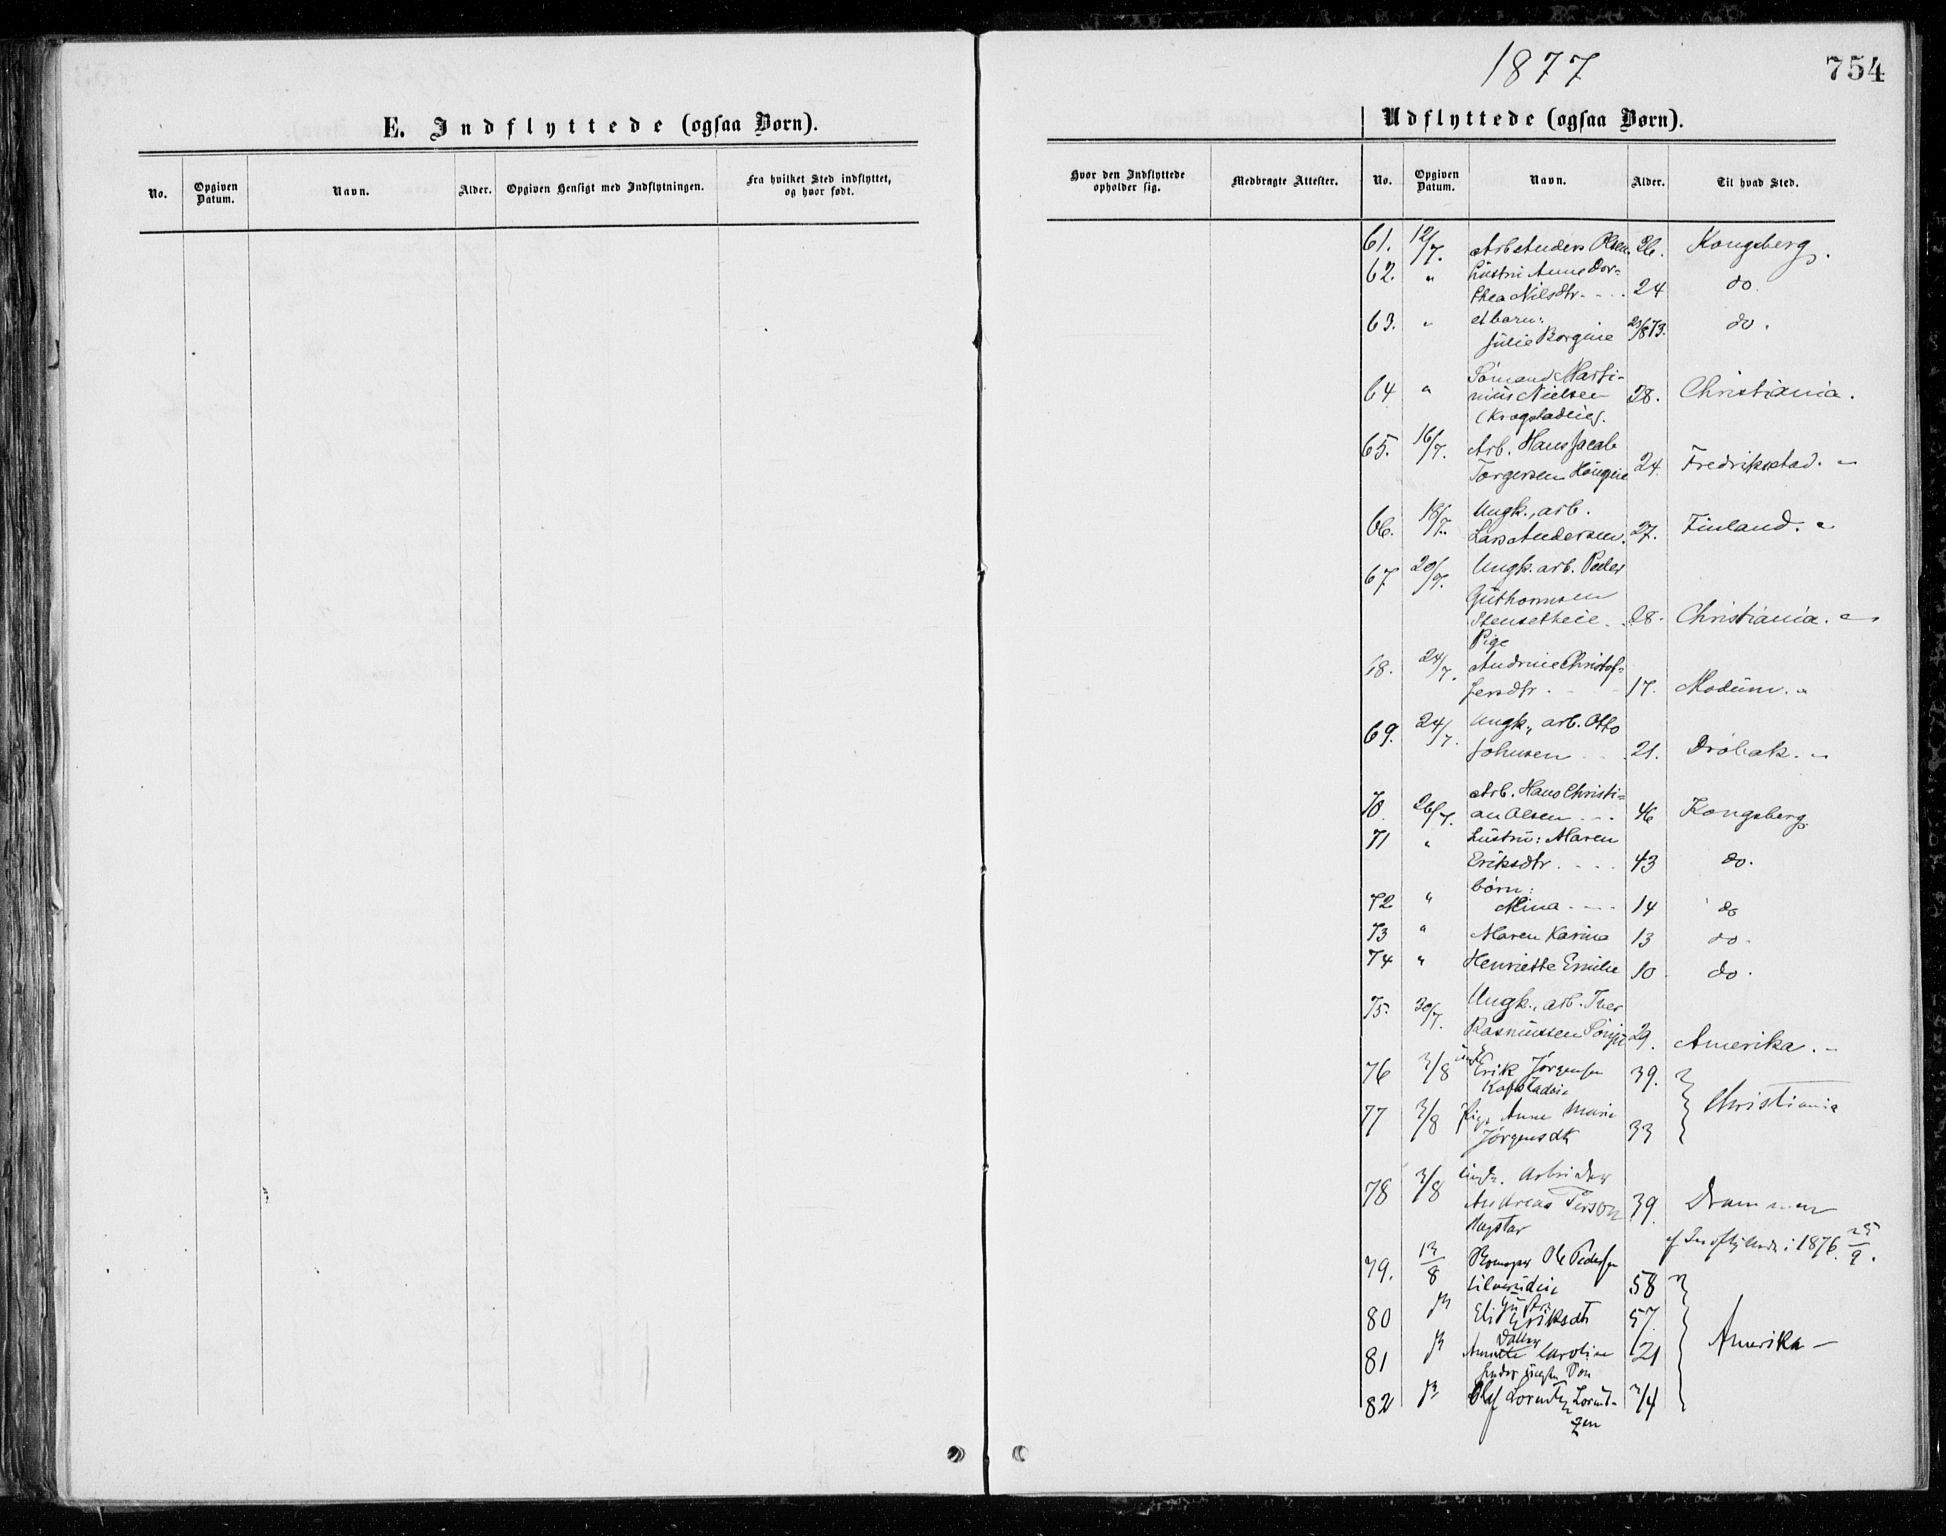 1877
754
E. Indflyttede (ogsaa Børn).
No.
Opgiven Datum.
Navn.
Alder.
Opgiven Hensigt med Indflytningen.
Fra hvilket Sted indflyttet, og hvor født.
Udflyttede (ogsaa Børn).
Hvor den Indflyttede opholder sig.
Medbragte Attester.
No.
Opgiven Datum.
Navn.
Alder.
Til hvad Sted.
61. 12/7. Arb Anders Olsen. 26. Kongsberg.
62. " Hustru Anne Dor=
thea Nilsdtr. - - . 24 do.
63. " et barn:
Julie Borgine 873. do.
64 " Sömand Marti-
nius Nielsen 28. Christiania.
65. 16/7. Arb. Hans Jacob
Torgersen 24. Fredrikstad.
66. 18/7. Ungk., arb.
Lars Andersen. 27. Finland.
67 20/7. Ungk. arb. Peder
Guthormsen
28. Christiania.
Pige
68. 24/7. Andrine Christof=
fersdtr. 17. Modum.
69. 24/7. Ungk., arb. Otto
Johnsen 21. Dröbak.
70. 26/7. Arb. Hans Christi=
an Olsen 46 Kongsberg
71 " Hustru: Maren
Eriksdtr. 43 do.
børn:
72 " Mina 14 do
73 " Maren Karina 13 do.
74 " Henriette Emilie 10 do.
75. 30/7. Ungk., arb. Iver
Rasmussen 29. Amerika.
76 3/8 Erik Jørgensen 39.
77 3/8 Pige Anne Marie
Jørgensdtr 33 Christiania
78 3/8 Arbeider
Andreas 39. Drammen
1876. 25/9.
79. 13/8 Ole Pedersen
58
80 Hustru
Eli Eriksdtr 57
81 Datter
Caroline 21 Amerika
82 Olaf Lorentz Lorent-
zen 3/4